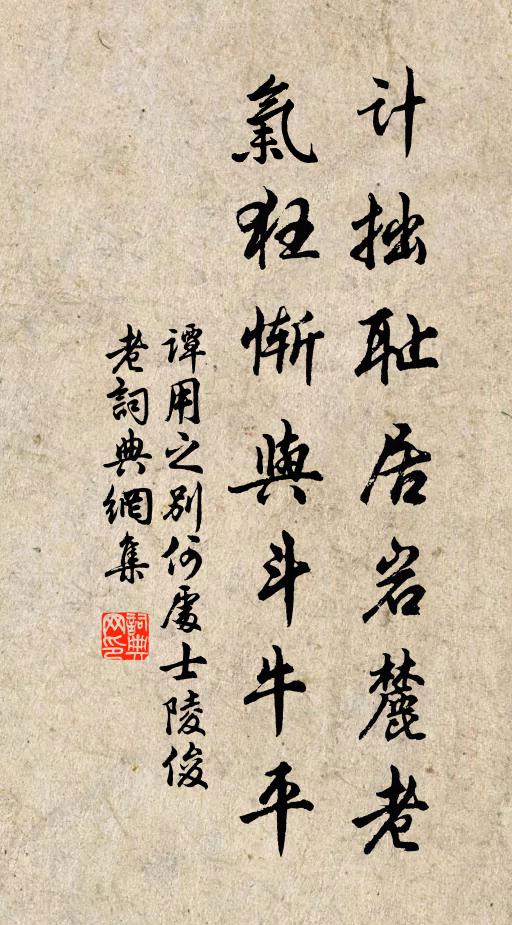 计拙耻居岩麓老
氣狂慚與斗牛平
譚用之别何處士陵俊
老詞典網集
詞典网印